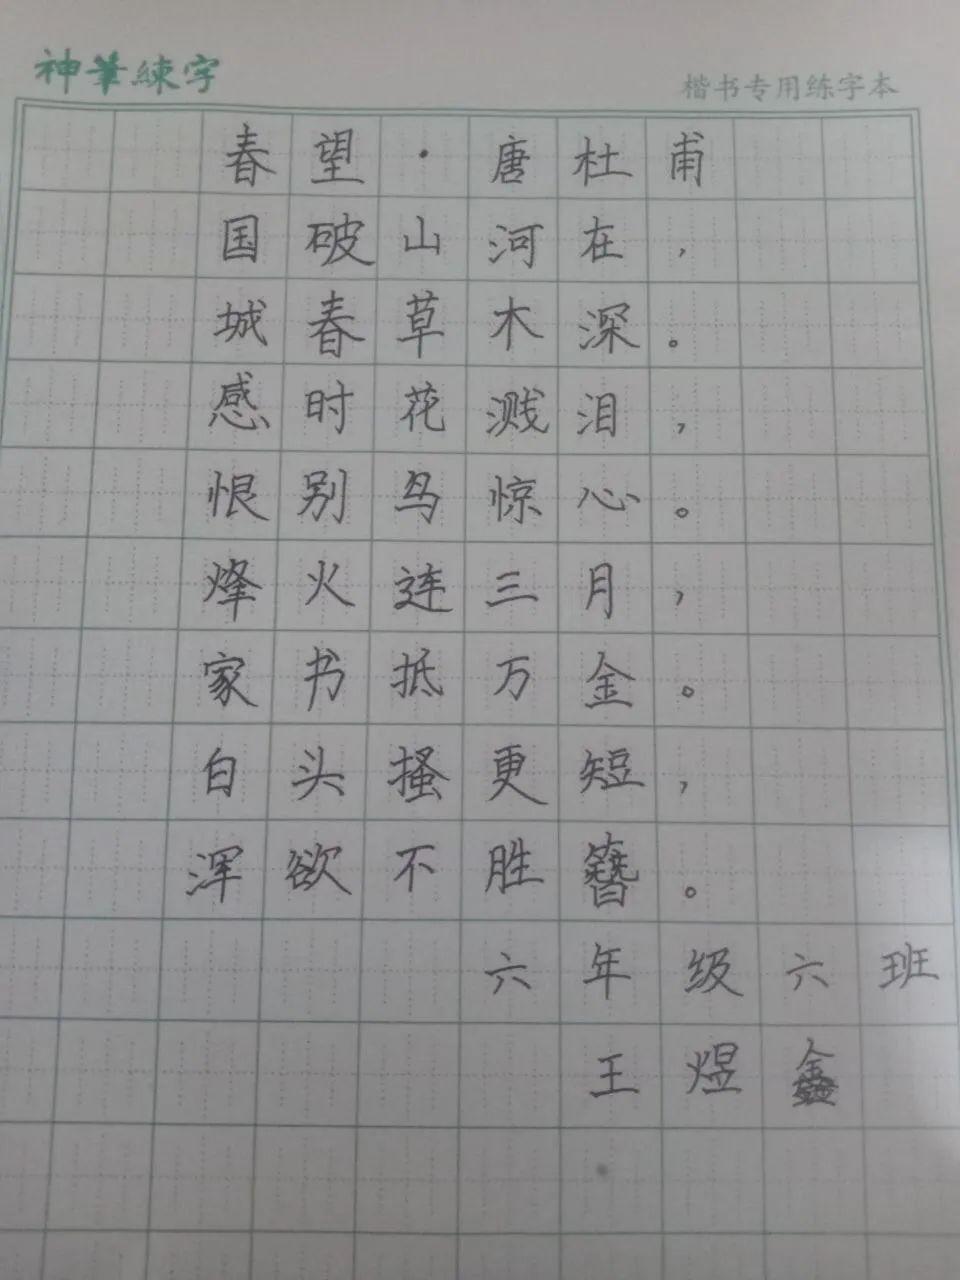 神筆練字
楷书专用练字本
春望·唐杜甫
国破山河在，
城春草木深。
感时花溅泪，
恨别鸟惊心。
烽火连三月，
家书抵万金。
白头搔更短，
浑欲不胜簪。
六年级六班
王煜鑫